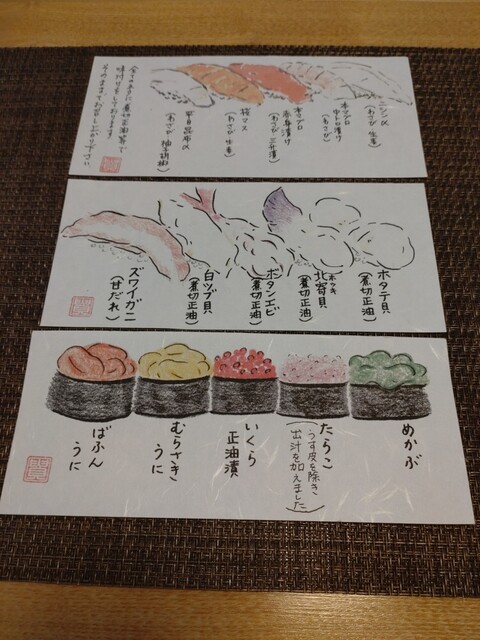 ニシン〆
(わさび 生姜)
本マグロ
中トロ漬け
(わさび)
本マグロ
赤身漬け
(わさび 三升漬)
桜マス
(わさび 生姜)
平目昆布〆
(わさび 柚子胡椒)
全てのネタに煮切正油等で
味付けをしております
そのままでお召し上がり下さい
ホタテ貝
(煮切正油)
ホッキ
北寄貝
(煮切正油)
ボタンエビ
(煮切正油)
白ツブ貝
(煮切正油)
ズワイガニ
(甘だれ)
めかぶ
たらこ
(うす皮を除き
出汁を加えました)
いくら
正油漬
むらさき
うに
ばふん
うに